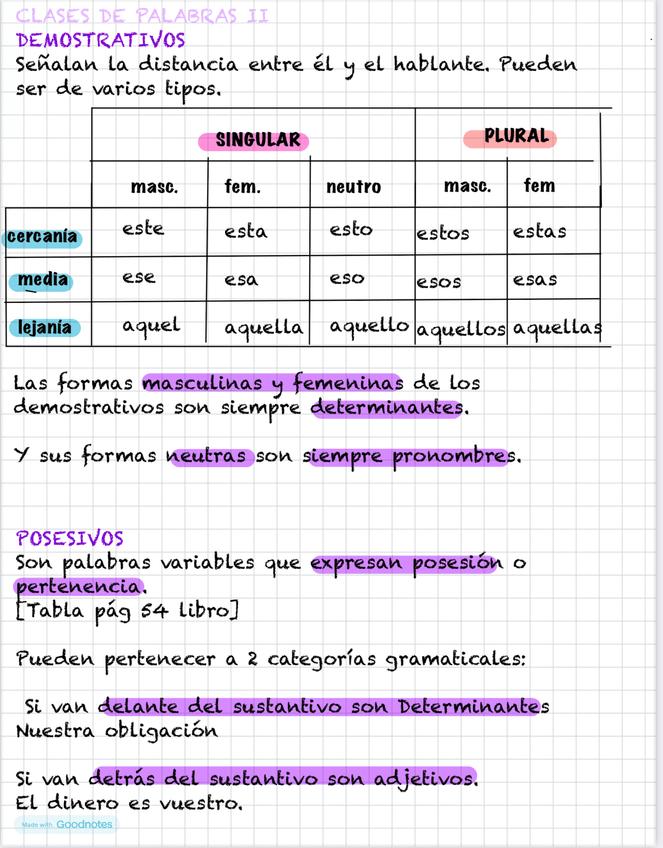 CLASES DE PALABRAS II
DEMOSTRATIVOS
Señalan la distancia entre él y el hablante. Pueden
ser de varios tipos.
SINGULAR PLURAL
masc. fem. neutro masc. fem
cercanía este esta esto estos estas
media ese esa eso esos esas
lejanía aquel aquella aquello aquellos aquellas
Las formas masculinas y femeninas de los
demostrativos son siempre determinantes.
Y sus formas neutras son siempre pronombres.
POSESIVOS
Son palabras variables que expresan posesión o
pertenencia.
[Tabla pág 54 libro]
Pueden pertenecer a 2 categorías gramaticales:
Si van delante del sustantivo son Determinantes
Nuestra obligación
Si van detrás del sustantivo son adjetivos.
El dinero es vuestro.
Made with Goodnotes